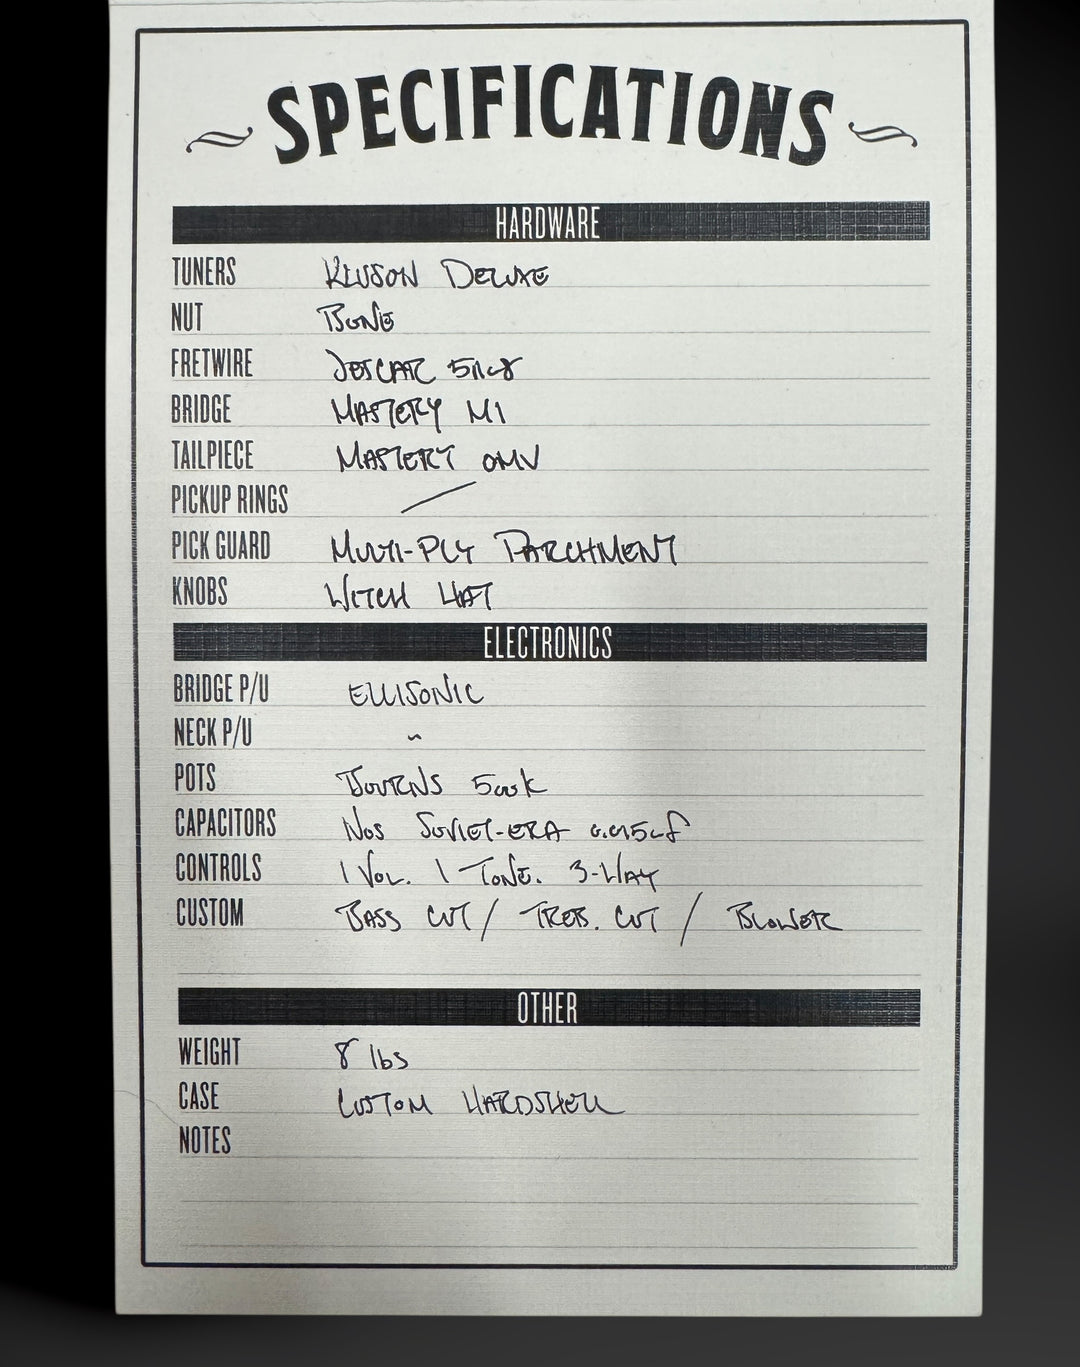 SPECIFICATIONS
HARDWARE
TUNERS KLUSON DELUXE
NUT BONE
FRETWIRE JESCAR
BRIDGE MASTERY M1
TAILPIECE MASTERY OMV
PICKUP RINGS /
PICK GUARD MULTI-PLY PARCHMENT
KNOBS WITCH HAT
ELECTRONICS
BRIDGE P/U ELLISONIC
NECK P/U "
POTS BOURNS 500k
CAPACITORS NOS SOVIET-ERA
CONTROLS 1 VOL. 1 TONE. 3-WAY
CUSTOM BASS CUT / TREB. CUT / BLOWER
OTHER
WEIGHT 8 lbs
CASE CUSTOM HARDSHELL
NOTES